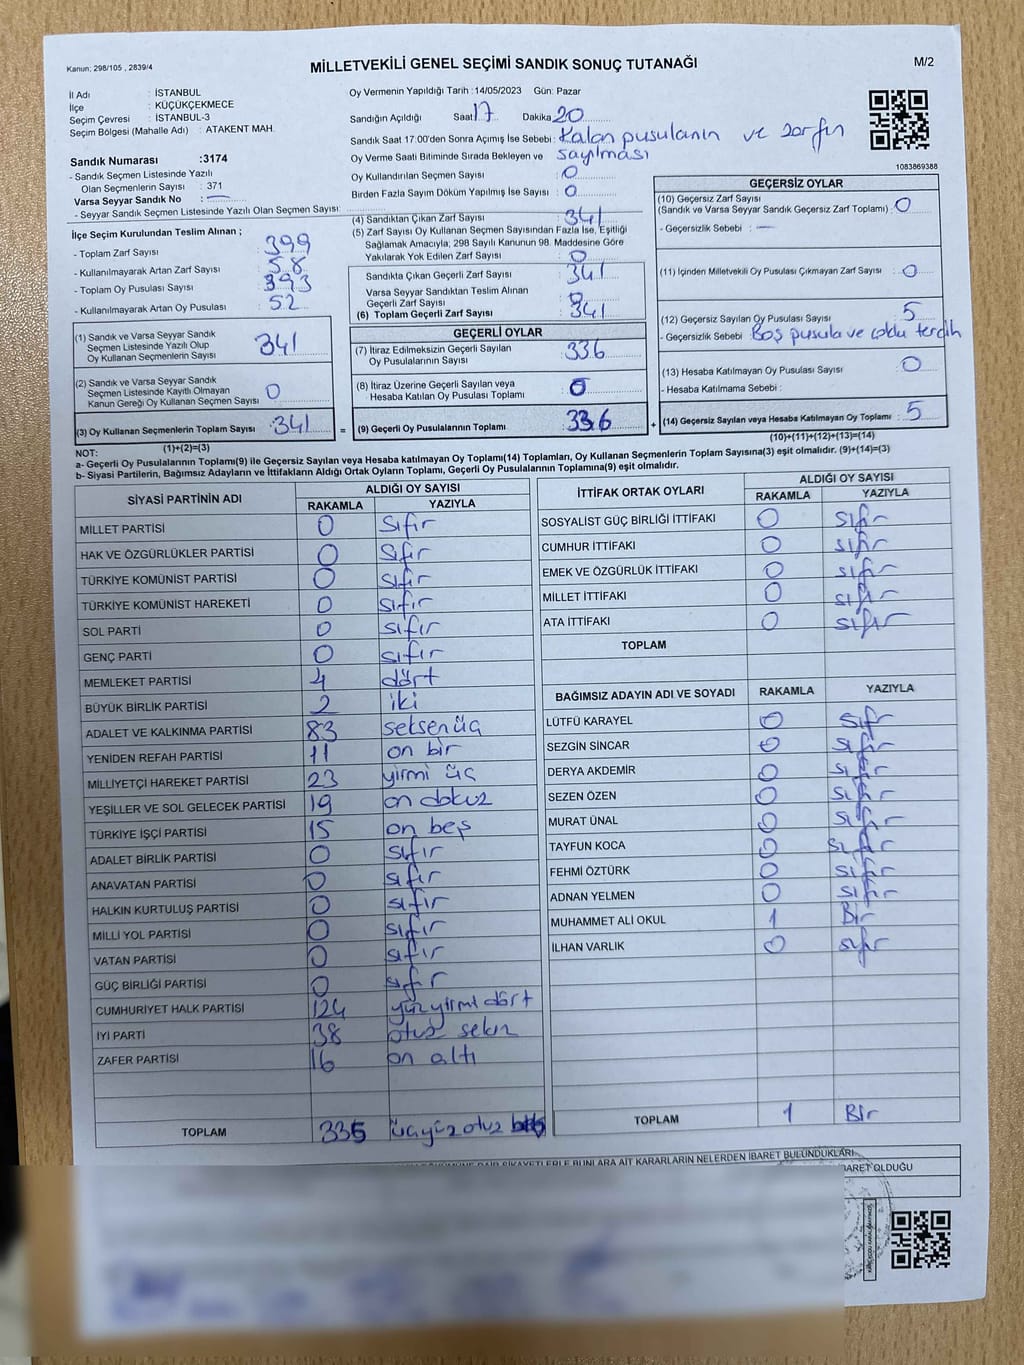 Kanun; 298/105 , 2839/4
MİLLETVEKİLİ GENEL SEÇİMİ SANDIK SONUÇ TUTANAĞI
M/2
İl Adı : İSTANBUL
İlçe : KÜÇÜKÇEKMECE
Seçim Çevresi : İSTANBUL-3
Seçim Bölgesi (Mahalle Adı) : ATAKENT MAH.
Sandık Numarası :3174
- Sandık Seçmen Listesinde Yazılı
Olan Seçmenlerin Sayısı : 371
Varsa Seyyar Sandık No : —
- Seyyar Sandık Seçmen Listesinde Yazılı Olan Seçmen Sayısı:
Oy Vermenin Yapıldığı Tarih :14/05/2023 Gün: Pazar
Sandığın Açıldığı Saat 17 Dakika 20
Sandık Saat 17:00'den Sonra Açımış İse Sebebi : Kalan pusulanın ve zarfın
sayılması
Oy Verme Saati Bitiminde Sırada Bekleyen ve
Oy Kullandırılan Seçmen Sayısı : 0
Birden Fazla Sayım Döküm Yapılmış İse Sayısı : 0
1083869388
İlçe Seçim Kurulundan Teslim Alınan ;
- Toplam Zarf Sayısı : 399
- Kullanılmayarak Artan Zarf Sayısı : 58
- Toplam Oy Pusulası Sayısı : 393
- Kullanılmayarak Artan Oy Pusulası : 52
(1) Sandık ve Varsa Seyyar Sandık
Seçmen Listesinde Yazılı Olup
Oy Kullanan Seçmenlerin Sayısı : 341
(2) Sandık ve Varsa Seyyar Sandık
Seçmen Listesinde Kayıtlı Olmayan
Kanun Gereği Oy Kullanan Seçmen Sayısı : 0
(3) Oy Kullanan Seçmenlerin Toplam Sayısı : 341
(1)+(2)=(3)
(4) Sandıktan Çıkan Zarf Sayısı : 341
(5) Zarf Sayısı Oy Kullanan Seçmen Sayısından Fazla İse, Eşitliği
Sağlamak Amacıyla; 298 Sayılı Kanunun 98. Maddesine Göre
Yakılarak Yok Edilen Zarf Sayısı : 0
Sandıkta Çıkan Geçerli Zarf Sayısı : 341
Varsa Seyyar Sandıktan Teslim Alınan
Geçerli Zarf Sayısı : 0
(6) Toplam Geçerli Zarf Sayısı : 341
GEÇERLİ OYLAR
(7) İtiraz Edilmeksizin Geçerli Sayılan
Oy Pusulalarının Sayısı : 336
(8) İtiraz Üzerine Geçerli Sayılan veya
Hesaba Katılan Oy Pusulası Toplamı : 0
= (9) Geçerli Oy Pusulalarının Toplamı : 336
GEÇERSİZ OYLAR
(10) Geçersiz Zarf Sayısı
(Sandık ve Varsa Seyyar Sandık Geçersiz Zarf Toplamı) : 0
- Geçersizlik Sebebi : —
(11) İçinden Milletvekili Oy Pusulası Çıkmayan Zarf Sayısı : 0
(12) Geçersiz Sayılan Oy Pusulası Sayısı : 5
- Geçersizlik Sebebi : Boş pusula ve çoklu tercih
(13) Hesaba Katılmayan Oy Pusulası Sayısı : 0
- Hesaba Katılmama Sebebi :
+ (14) Geçersiz Sayılan veya Hesaba Katılmayan Oy Toplamı : 5
(10)+(11)+(12)+(13)=(14)
NOT:
a- Geçerli Oy Pusulalarının Toplamı(9) ile Geçersiz Sayılan veya Hesaba katılmayan Oy Toplamı(14) Toplamları, Oy Kullanan Seçmenlerin Toplam Sayısına(3) eşit olmalıdır. (9)+(14)=(3)
b- Siyasi Partilerin, Bağımsız Adayların ve İttifakların Aldığı Ortak Oyların Toplamı, Geçerli Oy Pusulalarının Toplamına(9) eşit olmalıdır.
SİYASİ PARTİNİN ADI ALDIĞI OY SAYISI
RAKAMLA YAZIYLA
MİLLET PARTİSİ 0 Sıfır
HAK VE ÖZGÜRLÜKLER PARTİSİ 0 Sıfır
TÜRKİYE KOMÜNİST PARTİSİ 0 Sıfır
TÜRKİYE KOMÜNİST HAREKETİ 0 sıfır
SOL PARTİ 0 sıfır
GENÇ PARTİ 0 sıfır
MEMLEKET PARTİSİ 4 dört
BÜYÜK BİRLİK PARTİSİ 2 iki
ADALET VE KALKINMA PARTİSİ 83 seksenüç
YENİDEN REFAH PARTİSİ 11 on bir
MİLLİYETÇİ HAREKET PARTİSİ 23 yirmi üç
YEŞİLLER VE SOL GELECEK PARTİSİ 19 on dokuz
TÜRKİYE İŞÇİ PARTİSİ 15 on beş
ADALET BİRLİK PARTİSİ 0 sıfır
ANAVATAN PARTİSİ 0 sıfır
HALKIN KURTULUŞ PARTİSİ 0 sıfır
MİLLİ YOL PARTİSİ 0 sıfır
VATAN PARTİSİ 0 sıfır
GÜÇ BİRLİĞİ PARTİSİ 0 sıfır
CUMHURİYET HALK PARTİSİ 124 yüzyirmi dört
İYİ PARTİ 38 otuz sekiz
ZAFER PARTİSİ 16 on altı
TOPLAM 335 üçyüz otuz beş
İTTİFAK ORTAK OYLARI ALDIĞI OY SAYISI
RAKAMLA YAZIYLA
SOSYALİST GÜÇ BİRLİĞİ İTTİFAKI 0 sıfır
CUMHUR İTTİFAKI 0 sıfır
EMEK VE ÖZGÜRLÜK İTTİFAKI 0 sıfır
MİLLET İTTİFAKI 0 sıfır
ATA İTTİFAKI 0 sıfır
TOPLAM
BAĞIMSIZ ADAYIN ADI VE SOYADI RAKAMLA YAZIYLA
LÜTFÜ KARAYEL 0 sıfır
SEZGİN SİNCAR 0 sıfır
DERYA AKDEMİR 0 sıfır
SEZEN ÖZEN 0 sıfır
MURAT ÜNAL 0 sıfır
TAYFUN KOCA 0 sıfır
FEHMİ ÖZTÜRK 0 sıfır
ADNAN YELMEN 0 sıfır
MUHAMMET ALİ OKUL 1 Bir
İLHAN VARLIK 0 sıfır
TOPLAM 1 Bir
ŞİKAYETLERLE BUNLARA AİT KARARLARIN NELERDEN İBARET BULUNDUKLARI
BARET OLDUĞU